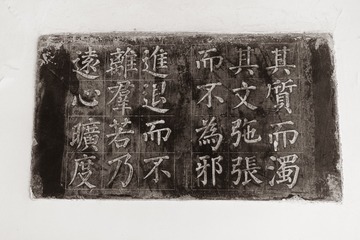 其質而濁
其文弛張
而不為邪
進退而不
離羣若乃
遠心曠度